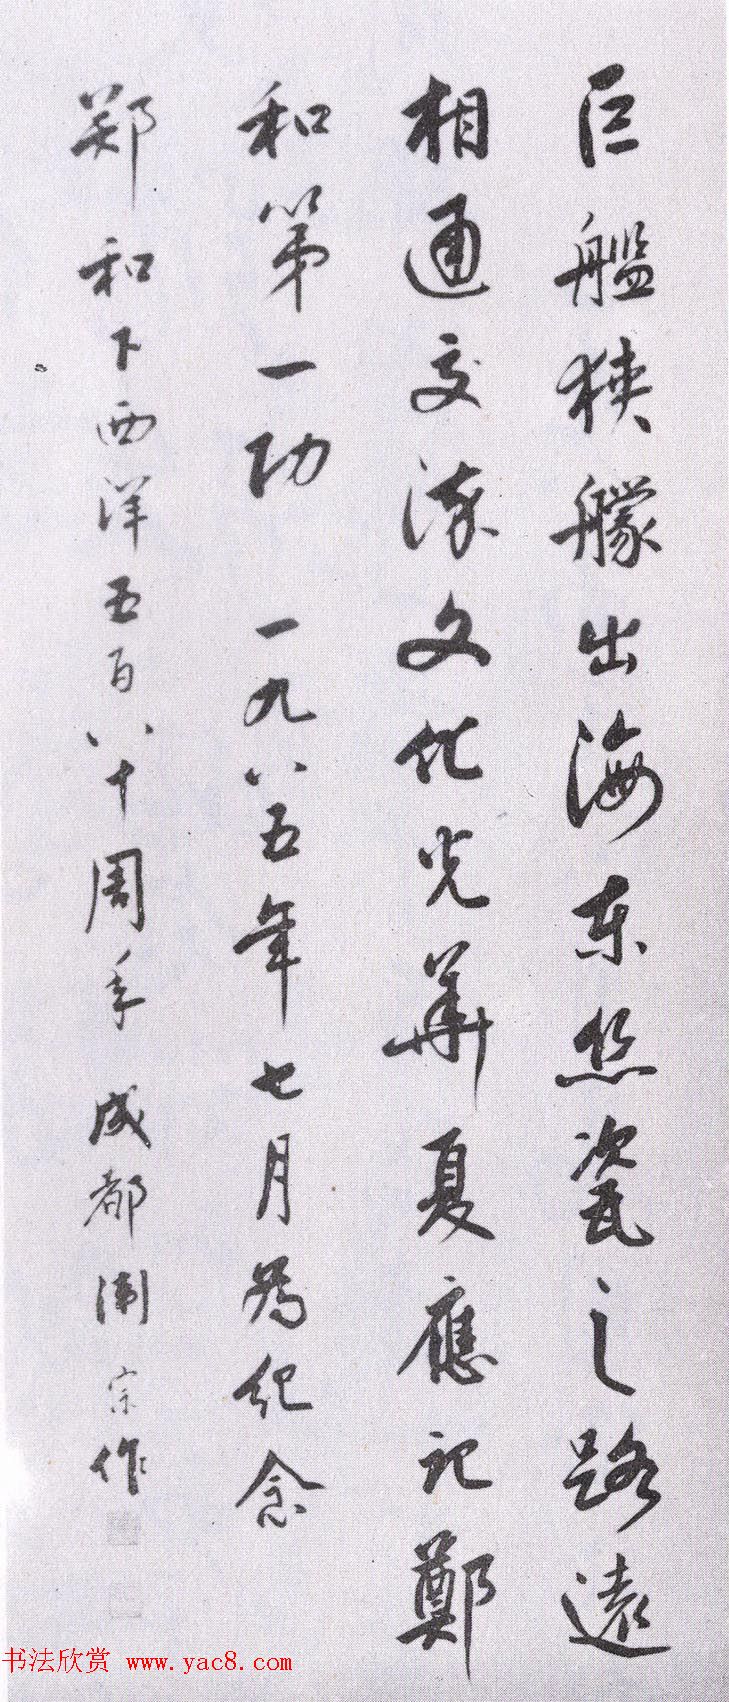 巨艦狹艨出海東絲瓷之路遠
相通交流文化光華夏應記鄭
和第一功 一九八五年七月為紀念
郑和下西洋五百八十周年 成都 宗作
书法欣赏 www.yac8.com